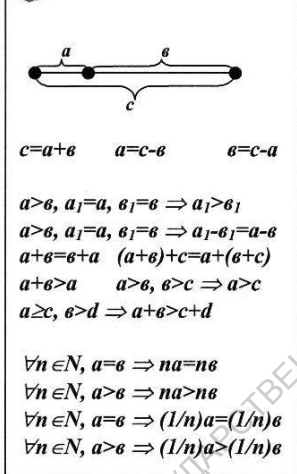 a в
c
c=a+в a=c-в в=c-a
a>в, a₁=a, в₁=в ⇒ a₁>в₁
a>в, a₁=a, в₁=в ⇒ a₁-в₁=a-в
a+в=в+a (a+в)+c=a+(в+c)
a+в>a a>в, в>c ⇒ a>c
a≥c, в>d ⇒ a+в>c+d
∀n∈N, a=в ⇒ na=nв
∀n∈N, a>в ⇒ na>nв
∀n∈N, a=в ⇒ (1/n)a=(1/n)в
∀n∈N, a>в ⇒ (1/n)a>(1/n)в